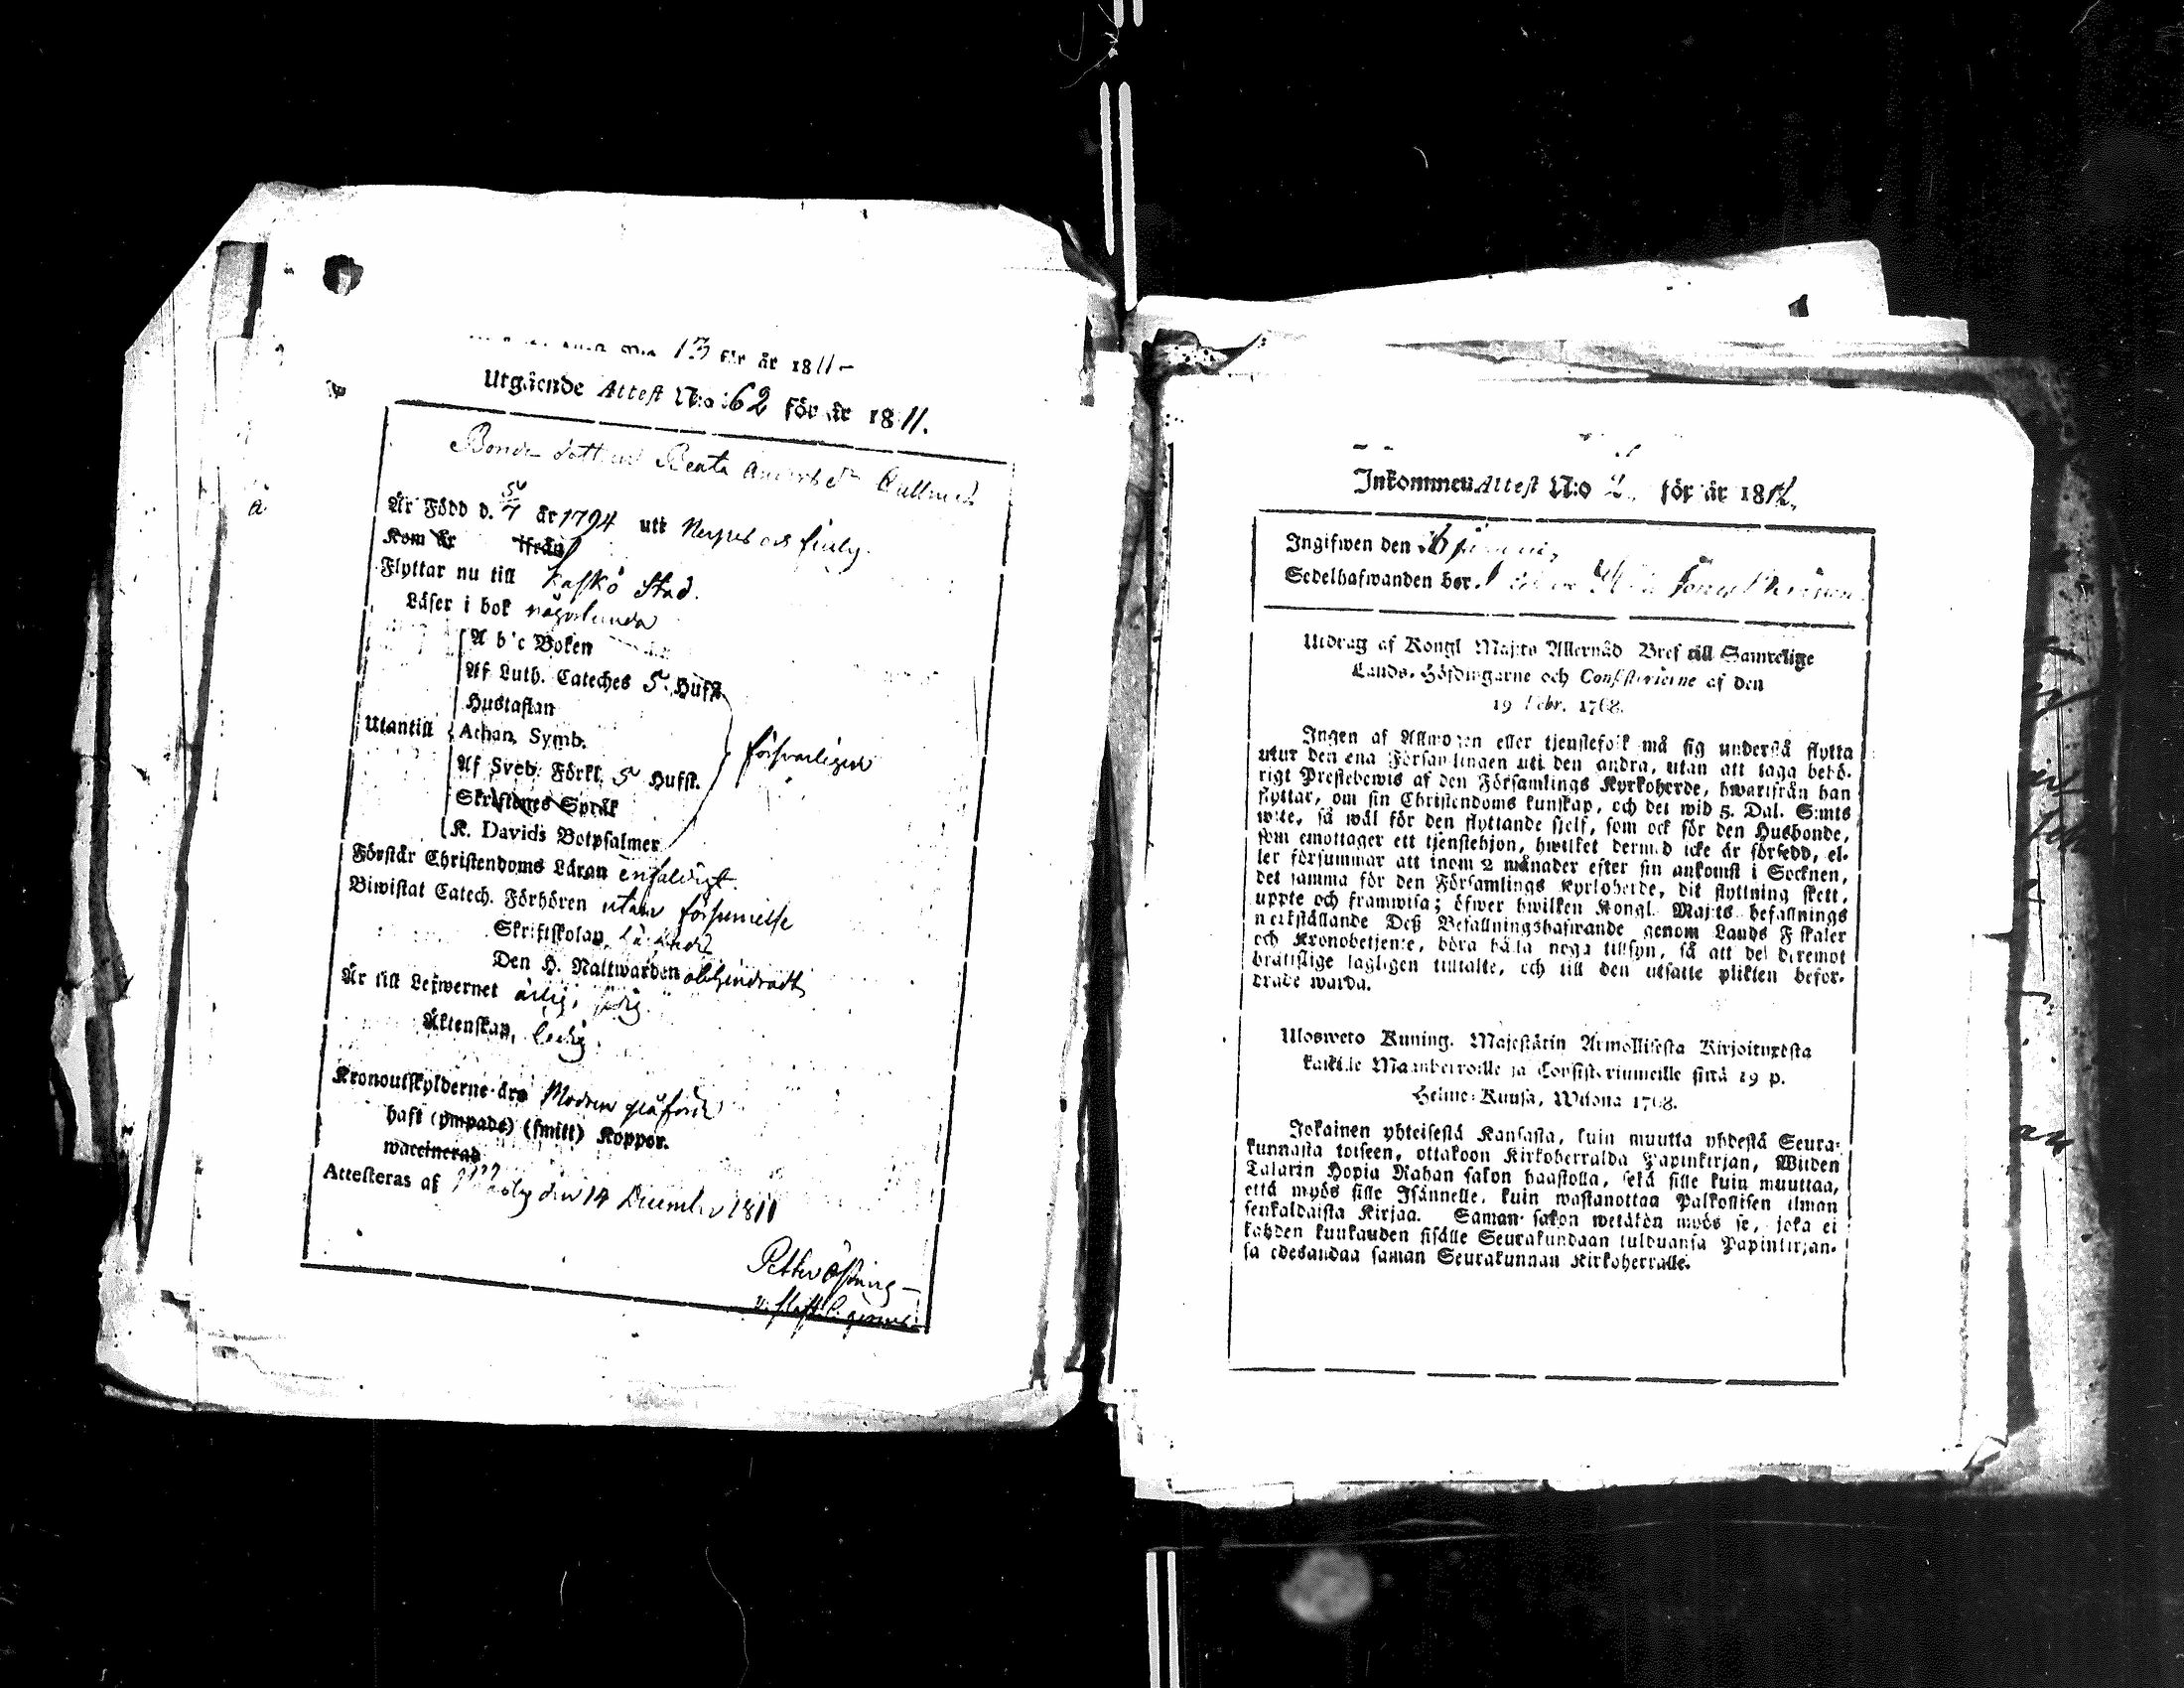 13 för år 1811 –
Utgående Attest N:o 62 för år 1811.
Bonde Beata
Är Född d. 5/7 år 1794 utt
Kom år ifrån
Flyttar nu till Kaskö Stad.
Läser i bok någorlunda
A b c Boken
Af Luth. Cateches 5. Hufst.
Hustaflan
Utantill Athan. Symb.
Af Sveb. Förkl. 5 Hufst. försvarligen
Skriftenes Språk
K. Davids Botpsalmer
Förstår Christendoms Läran enfaldigt
Biwistat Catech. Förhören utan försumelse
Skriftskolan
Den H. Nattwarden obehindradt
Är till Lefwernet ärlig,
Äktenskap, ledig.
Kronoutskylderne äro Modren påförde
haft (ympade) (smitt) Koppor.
waccinerad
Attesteras af den 14 December 1811
Petter
Inkommen Attest N:o 2. för år 1812.
Ingifwen den
Sedelhafwanden bor
Utdrag af Kongl Maj:ts Allernåd Bref till Samtelige
Lands-Höfdingarne och Consistorierne af den
19 Febr. 1768.
Ingen af Allmogen eller tjenstefolk må sig understå flytta
utur den ena Församlingen uti den andra, utan att taga behö-
rigt Prestebewis af den Församlings Kyrkoherde, hwarifrån han
flyttar, om sin Christendoms kunskap, och det wid 5. Dal. S:mts
wite, så wäl för den flyttande sjelf, som ock för den Husbonde,
som emottager ett tjenstehjon, hwilket dermed icke är försedd, el-
ler försummar att inom 2 månader efter sin ankomst i Socknen,
det samma för den Församlings Kyrkoherde, dit flyttning skett,
uppte och framwisa; öfwer hwilken Kongl. Maj:ts befallnings
werkställande Deß Befallningshafwande genom Lands Fiskaler
och Kronobetjente, böra hålla noga tillsyn, så att de deremot
brottslige lagligen tilltalte, och till den utsatte plikten befor-
drade warda.
Ulosweto Kuning. Majestätin Armollisesta Kirjoituxesta
kaikille Maanherroille ja Consistoriumeille siitä 19 p.
Helme-Kuusa, Wuona 1768.
Jokainen yhteisestä Kansasta, kuin muutta yhdestä Seura-
kunnasta toiseen, ottakoon Kirkoherralda Papinkirjan, Wiiden
Talarin Hopia Rahan sakon haastolla, sekä sille kuin muuttaa,
että myös sille Isännelle, kuin wastanottaa Palkollisen ilman
senkaldaista Kirjaa. Saman sakon wetäkön myös se, joka ei
kahden kuukauden sisälle Seurakundaan tulduansa Papinkirjan-
sa edesandaa saman Seurakunnan Kirkoherralle.